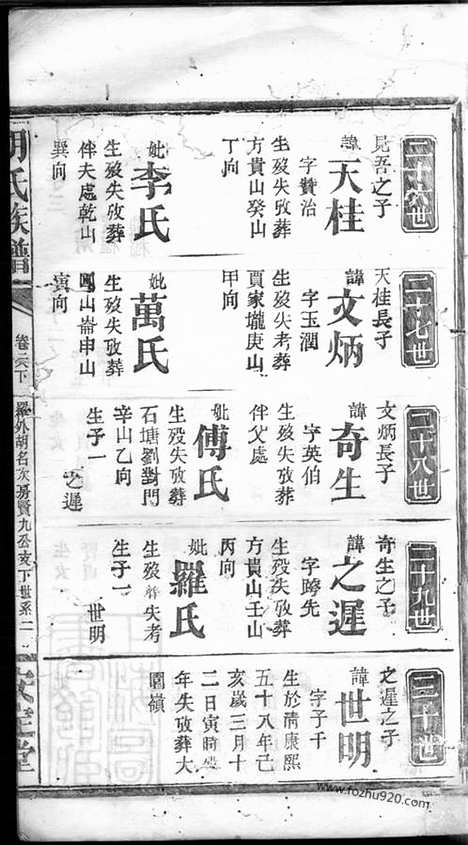 二十六世
昆吾之子
諱天桂
字贊治
生歿失攷葬
方貴山癸山
丁向
妣李氏
生歿失攷葬
伴夫處乾山
巽向
二十七世
天桂長子
諱文炳
字玉潤
生歿失考葬
賈家壠庚山
甲向
妣萬氏
生歿失攷葬
山崙申山
寅向
二十八世
文炳長子
諱奇生
字英伯
生歿失攷葬
伴父處
妣傅氏
生歿失攷葬
石塘劉對門
辛山乙向
生子一
之遲
二十九世
奇生之子
諱之遲
字跨先
生歿失攷葬
方貴山壬山
丙向
妣羅氏
生歿葬失考
生子一
世明
三十世
之遲之子
諱世明
字子千
生於清康熙
五十八年己
亥歲三月十
二日寅時歿
年失攷葬大
圍嶺
胡氏族譜
卷六下
羅外胡名次房賢九公支下世系二
安定堂
www.fozhu920.com